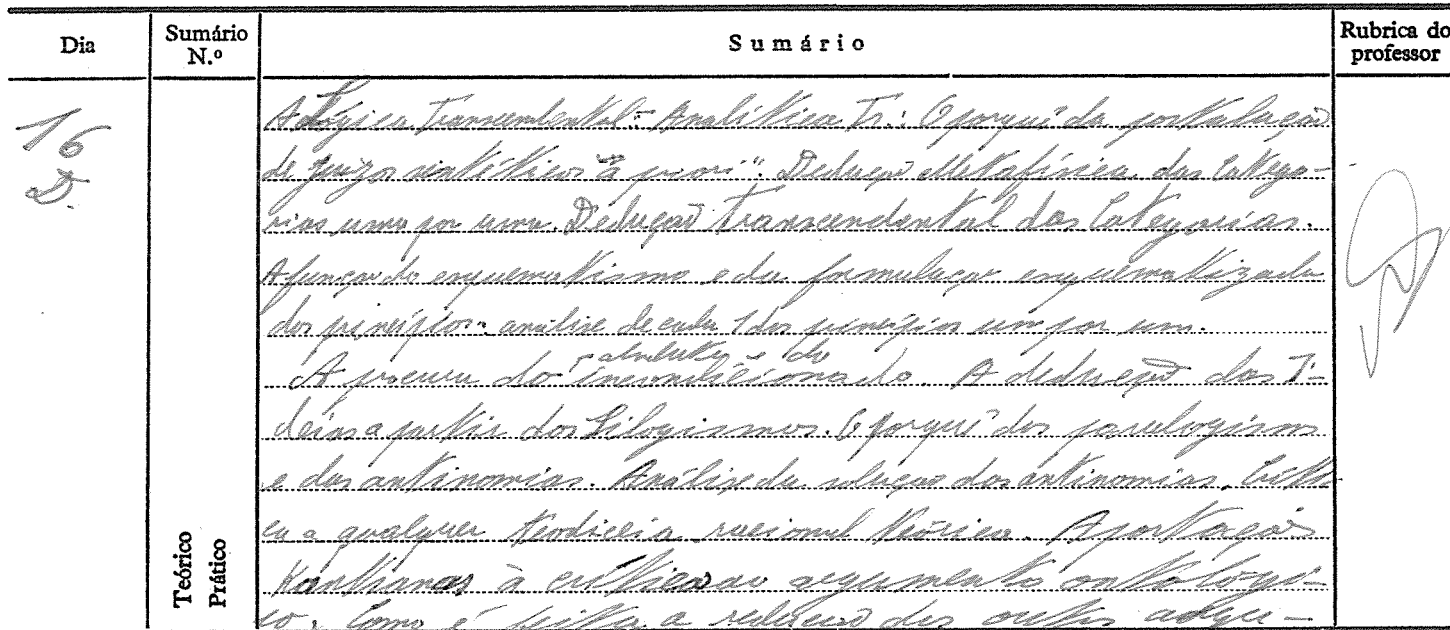 Dia
Sumário N.º
Sumário
Rubrica do professor
16
D.
A Lógica Transcendental: Analítica Tr.: O porquê da postulação
de juizos sintéticos "a priori". Dedução Metafísica das Catego-
rias uma por uma. Dedução Transcendental das Categorias.
A função do esquematismo e da formulação esquematizada
dos princípios: análise de cada 1 dos princípios um por um.
absoluto e do
A procura do incondicionado. A dedução das I-
deias a partir dos Silogismos. O porquê dos paralogismos
e das antinomias. Análise da solução das antinomias. Críti-
ca a qualquer teodiceia racional teórica. Aportações
Kantianas à crítica ao argumento ontologi-
co. Como é feita a redução dos outros argu-
Teórico
Prático